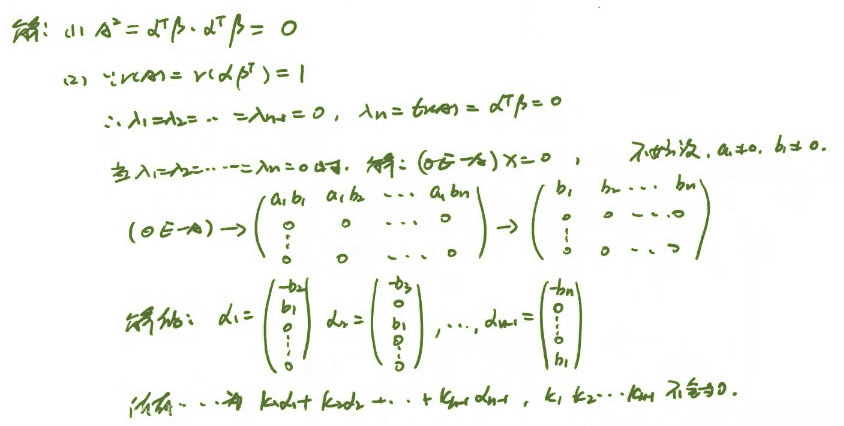 解: (1) A² = αᵀβ·αᵀβ = 0
(2) ∵ r(A) = r(αβᵀ) = 1
∴ λ₁=λ₂=…=λₙ₋₁=0, λₙ = tr(A) = αᵀβ = 0
当 λ₁=λ₂=……=λₙ=0时. 解: (0E-A)X=0, 不妨设, a₁≠0, b₁≠0.
(0E-A) → (a₁b₁ a₁b₂ … a₁bₙ; 0 0 … 0; ⋮; 0 0 … 0) → (b₁ b₂ … bₙ; 0 0 … 0; ⋮; 0 0 … 0)
解得: α₁ = (-b₂; b₁; 0; ⋮; 0) α₂ = (-b₃; 0; b₁; 0; ⋮; 0), …, αₙ₋₁ = (-bₙ; 0; ⋮; 0; b₁)
…… 为 k₁α₁ + k₂α₂ + … + kₙ₋₁αₙ₋₁, k₁ k₂ … kₙ₋₁ 不全为0.